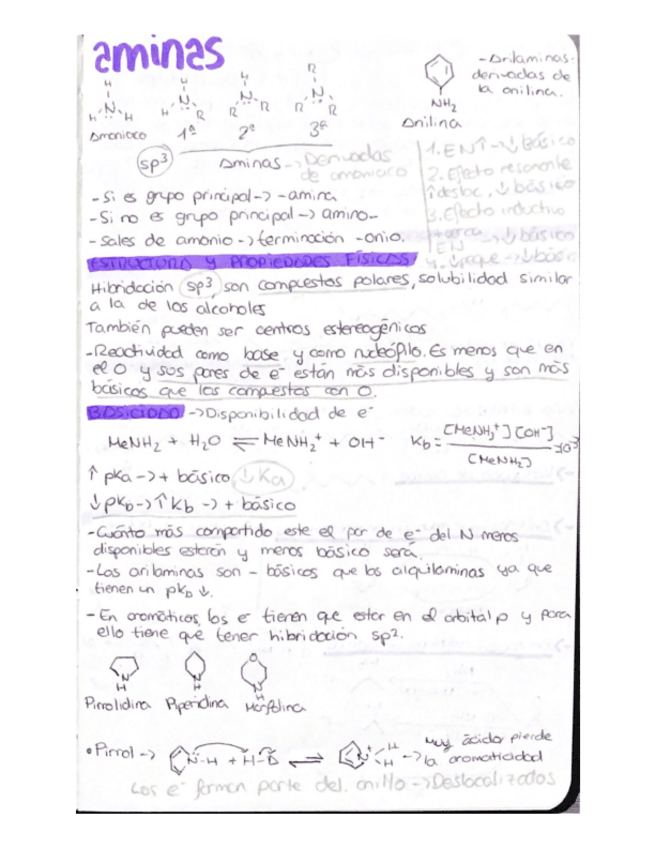 aminas
Amoniaco 1ª 2ª 3ª
Anilina
- Arilaminas.
derivadas de
la anilina.
sp³
Aminas -> Derivadas
de amoniaco
1. EN↑ -> ↓ básico
2. Efecto resonante
↑desloc, ↓ básico
3. Efecto inductivo
+ cerca EN -> ↓ básico
- Si es grupo principal -> -amina
- Si no es grupo principal -> amino-
- Sales de amonio -> terminación -onio.
ESTRUCTURA Y PROPIEDADES FÍSICAS
Hibridación sp³, son compuestos polares, solubilidad similar
a la de los alcoholes
También pueden ser centros estereogénicos
- Reactividad como base y como nucleófilo. Es menos que en
el O y sus pares de e⁻ están más disponibles y son más
básicos que los compuestos con O.
BASICIDAD -> Disponibilidad de e⁻
MeNH₂ + H₂O ⇌ MeNH₃⁺ + OH⁻ Kb = [MeNH₃⁺][OH⁻] / [MeNH₂]
↑ pKa -> + básico ↓Ka
↓ pKb -> ↑ Kb -> + básico
- Cuánto más compartido este el par de e⁻ del N menos
disponibles estarán y menos básico será.
- Las arilaminas son - básicos que las alquilaminas ya que
tienen un pKb ↓.
- En aromáticos, los e⁻ tienen que estar en el orbital p y para
ello tiene que tener hibridación sp².
Pirrolidina Piperidina Morfolina
• Pirrol -> N-H + H-B ⇌ N⁺ H H -> muy ácido pierde
la aromaticidad
Los e⁻ forman parte del anillo -> Deslocalizados